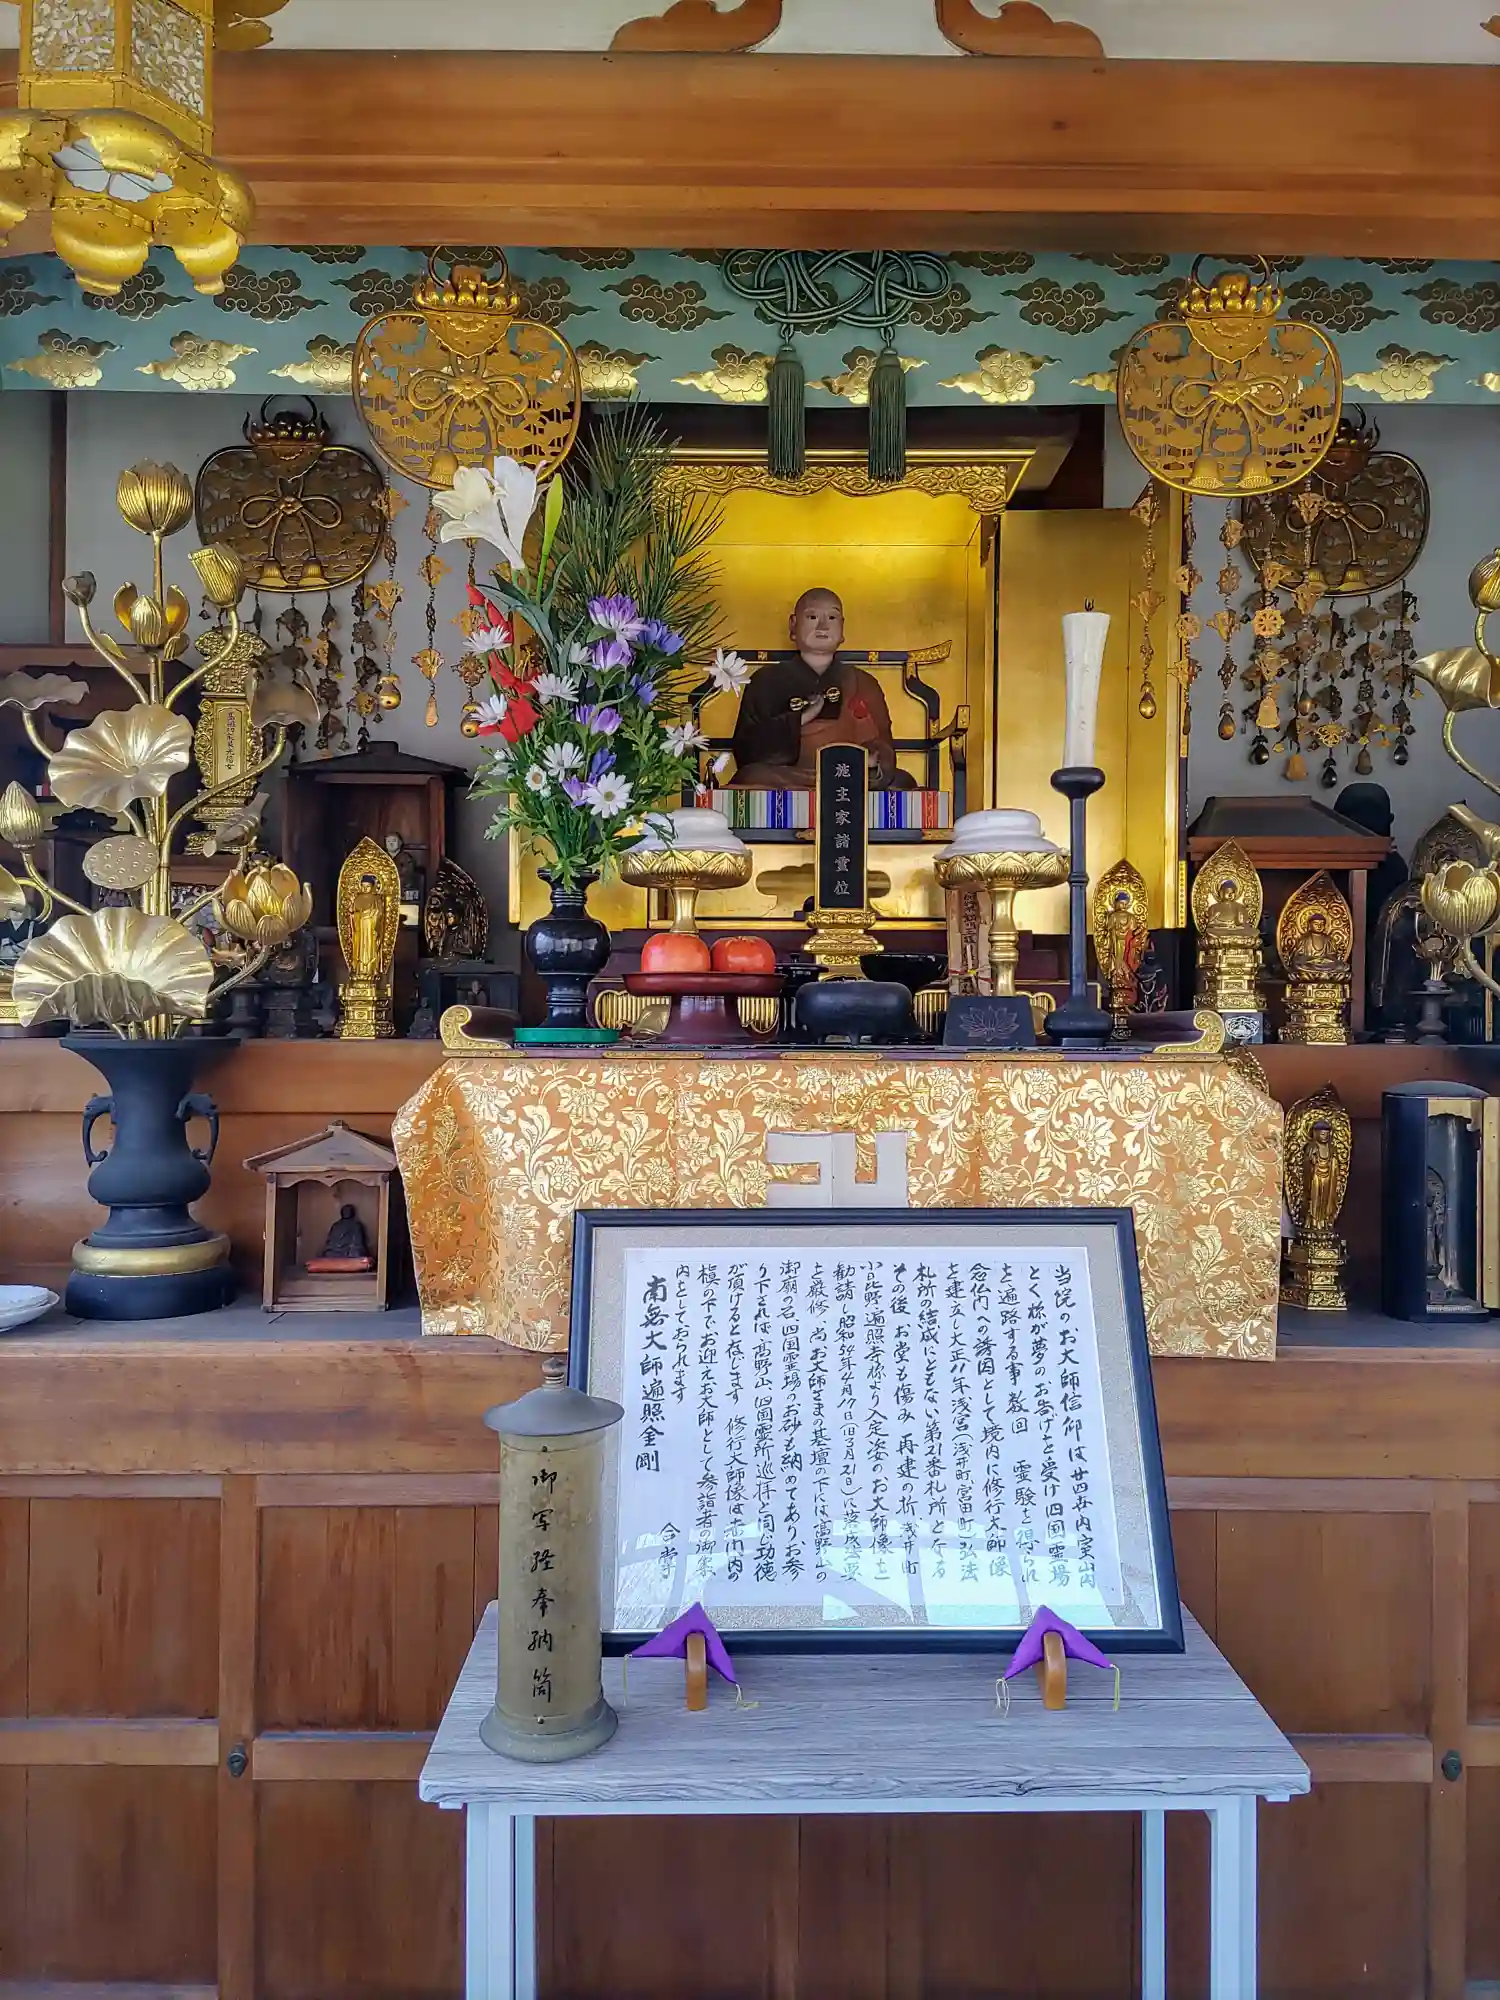 施主家諸霊位
当院のお大師信仰は廿四世内室山内
とく称が夢のお告げを受け四国霊場
を遍路する事数回 霊験を得られ
念仏門への誘因として境内に修行大師像
を建立し大正11年浅宮(浅井町、宮田町)弘法
札所の結成にともない第21番札所となる
その後 お堂も傷み 再建の折、浅井町
小日比野 遍照寺称より入定姿のお大師像を
勧請し昭和54年4月17日(旧3月21日)に落成法要
を厳修、尚お大師さまの基壇の下には高野山の
御廟の石 四国霊場のお砂も納めてありお参
り下されば 高野山 四国霊所巡拝と同じ功徳
が頂けると存じます 修行大師像は赤門内の
槇の下でお迎えお大師として参詣者の御案
内をしておられます
合掌
南無大師遍照金剛
御写経奉納筒